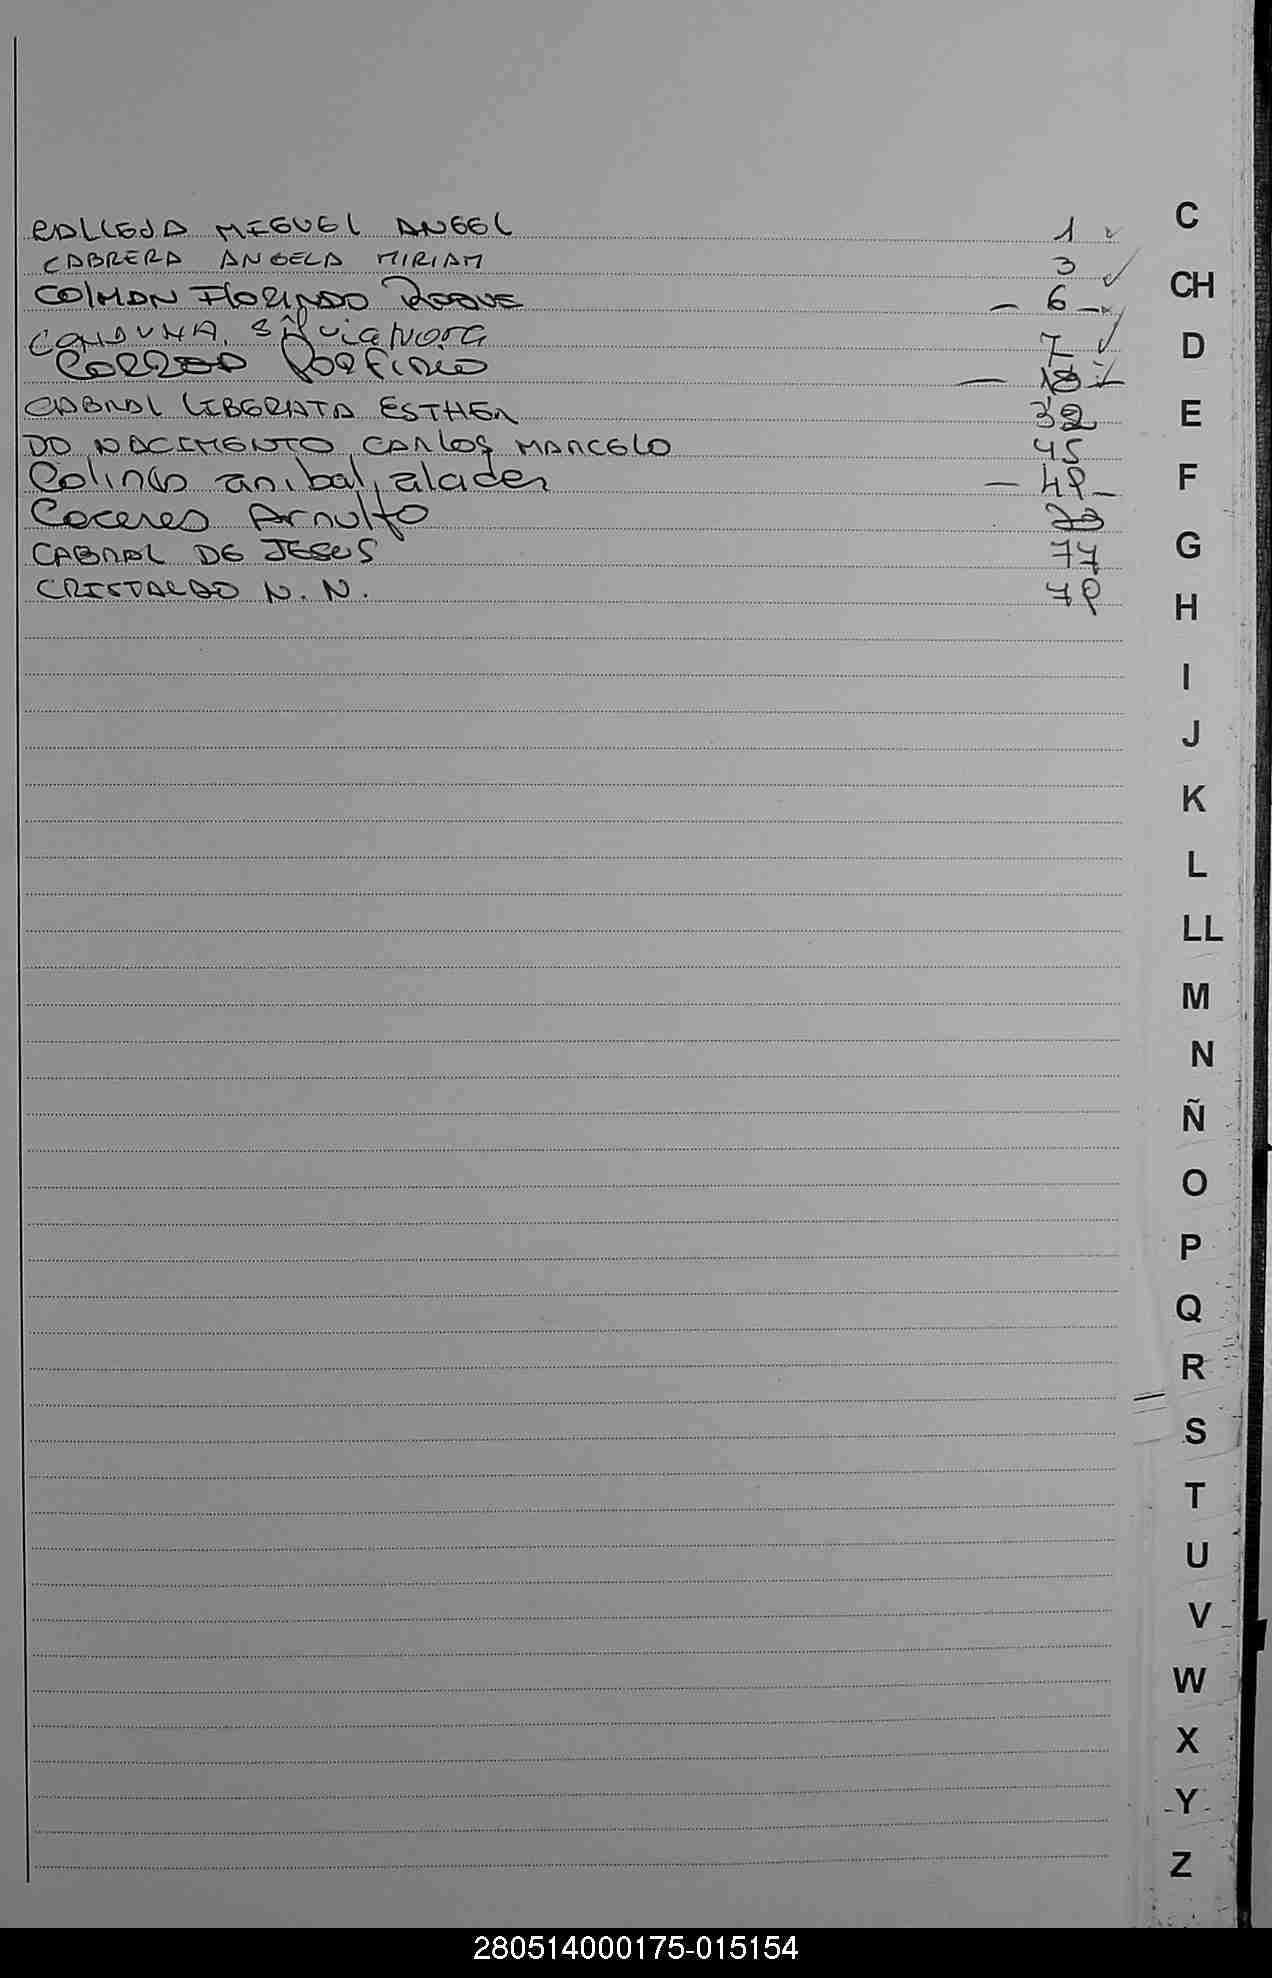 CALLEJA MIGUEL ANGEL 1
CABRERA ANGELA MIRIAM 3
COLMAN FLORINDO ROQUE - 6 -
Silvia Nora 7
CORREA PORFIRIO -
CABRAL LIBERATA ESTHER 32
DO NACIMENTO CARLOS MARCELO 45
anibal - 48 -
Caceres Arnulfo
CABRAL DE JESUS 77
CRISTALDO N. N. 78
C
CH
D
E
F
G
H
I
J
K
L
LL
M
N
Ñ
O
P
Q
R
S
T
U
V
W
X
Y
Z
280514000175-015154